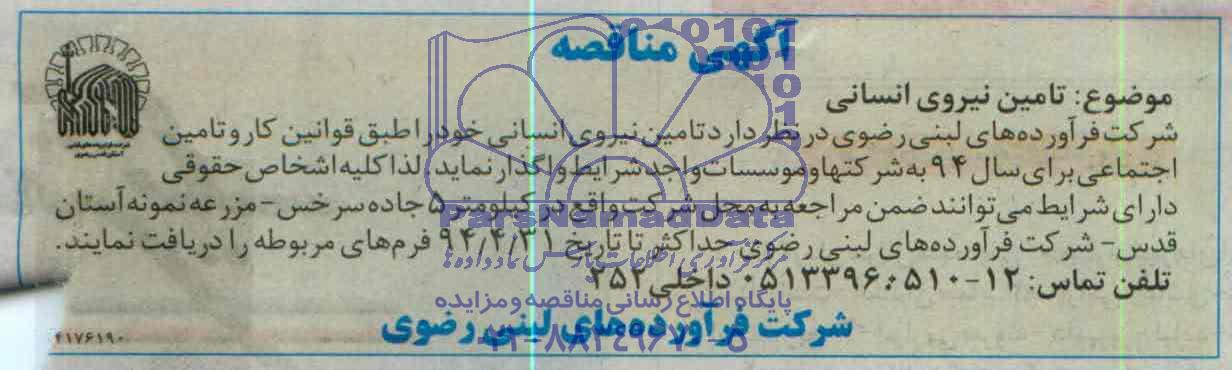 آگهی مناقصه
موضوع: تامین نیروی انسانی
شرکت فرآورده‌های لبنی رضوی در نظر دارد تامین نیروی انسانی خود را طبق قوانین کار و تامین
اجتماعی برای سال ۹۴ به شرکتها و موسسات واجد شرایط واگذار نماید. لذا کلیه اشخاص حقوقی
دارای شرایط می‌توانند ضمن مراجعه به محل شرکت واقع در کیلومتر ۵ جاده سرخس - مزرعه نمونه آستان
قدس - شرکت فرآورده‌های لبنی رضوی حداکثر تا تاریخ ۹۴/۴/۳۱ فرم‌های مربوطه را دریافت نمایند.
تلفن تماس: ۱۲-۰۵۱۳۳۹۶۰۵۱۰ داخلی ۲۵۲
شرکت فرآورده‌های لبنی رضوی
۴۱۷۶۱۹۰
ParsNamadData
پایگاه اطلاع رسانی مناقصه و مزایده